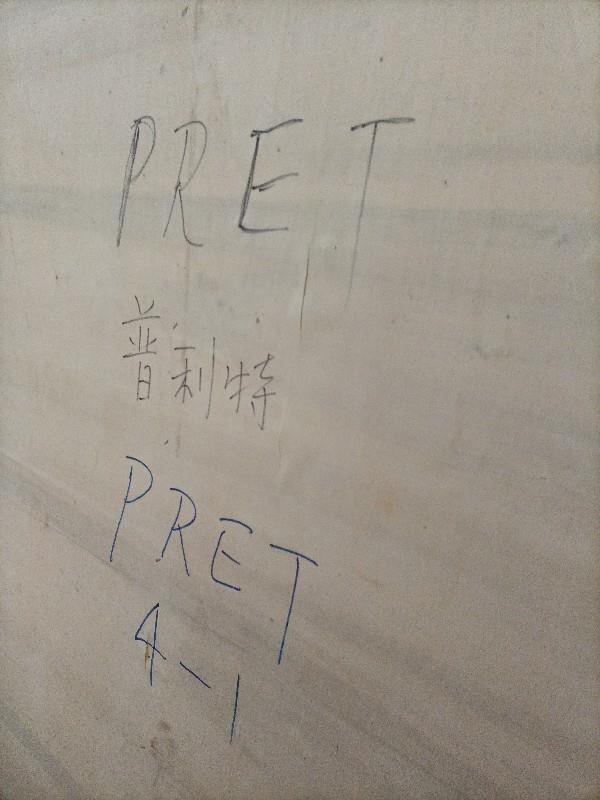 PRET
普利特
PRET
4-1